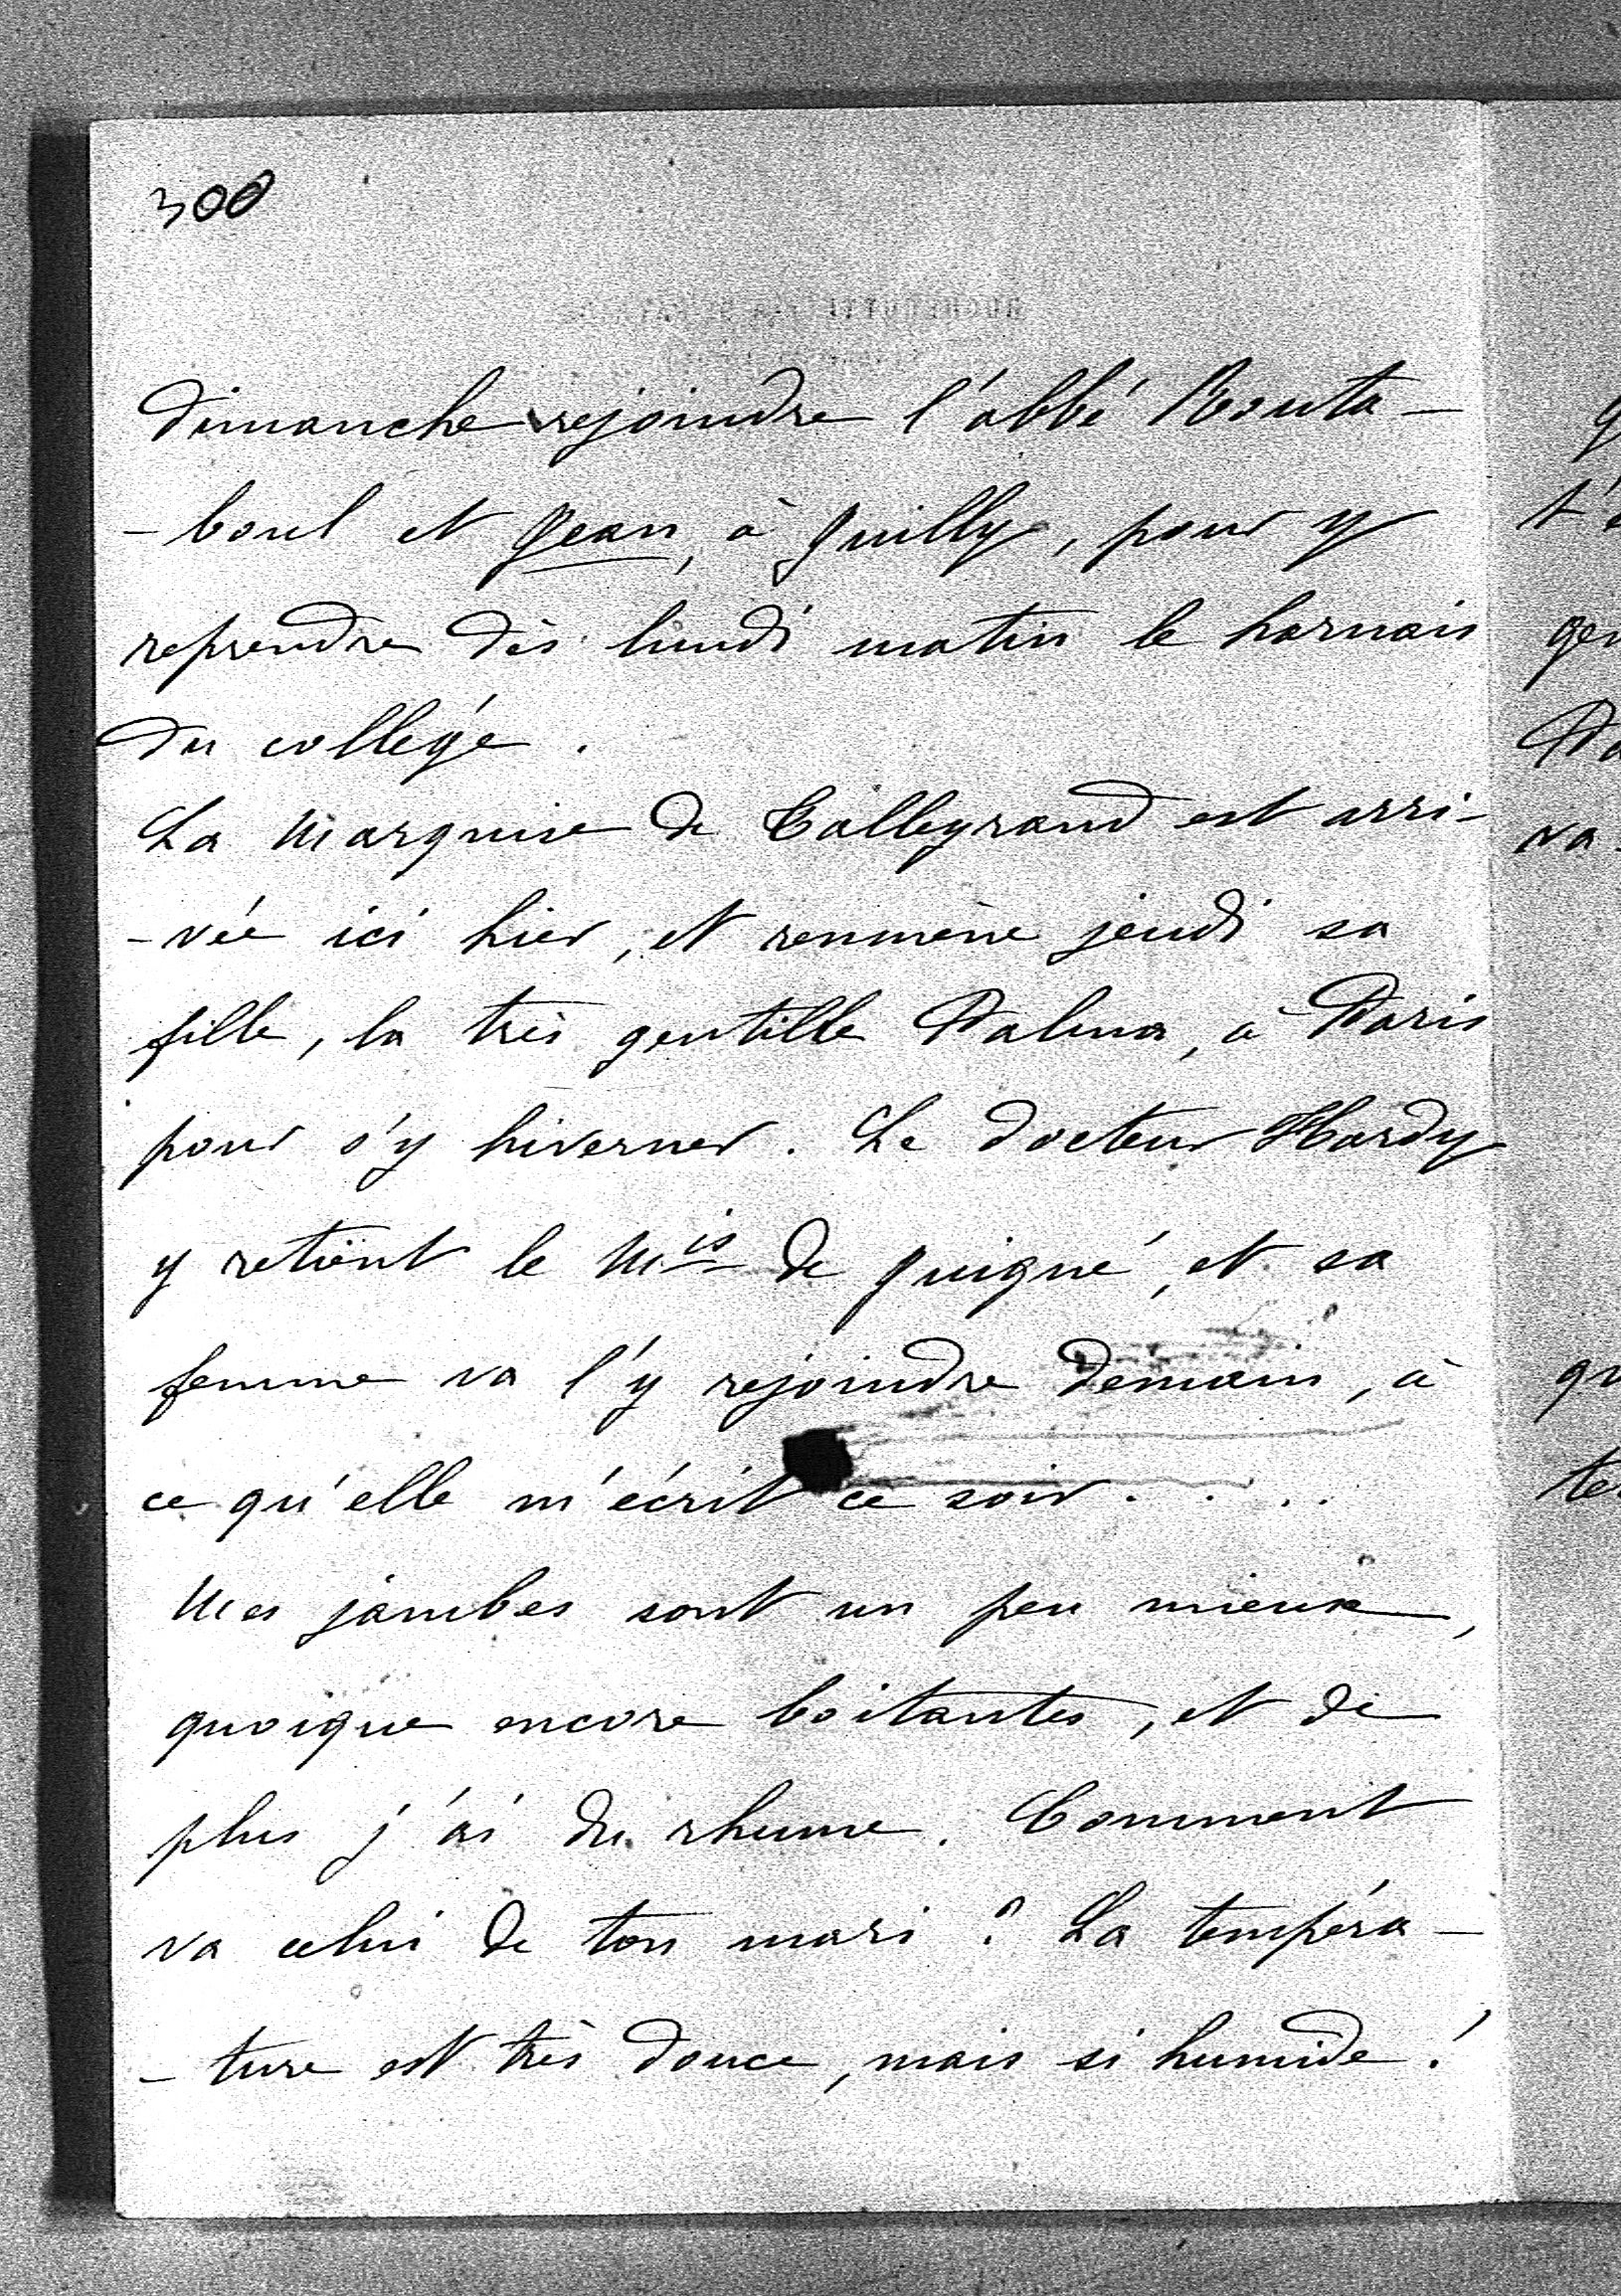 300
dimanche rejoindre l'abbé Routa-
-boul et Jean, à Juilly, pour y
reprendre dès lundi matin le harnais
du collège.
La Marquise de Talleyrand est arri-
-vée ici hier, et remmène jeudi sa
fille, la très gentille Palma, à Paris
pour s'y hiverner. Le docteur Hardy
y retient le Mis de Juigné, et sa
femme va l'y rejoindre demain, à
ce qu'elle m'écrit ce soir....
Mes jambes sont un peu mieux,
quoique encore boitantes, et de
plus j'ai du rhume. Comment
va celui de ton mari? La tempéra-
-ture est très douce, mais si humide!